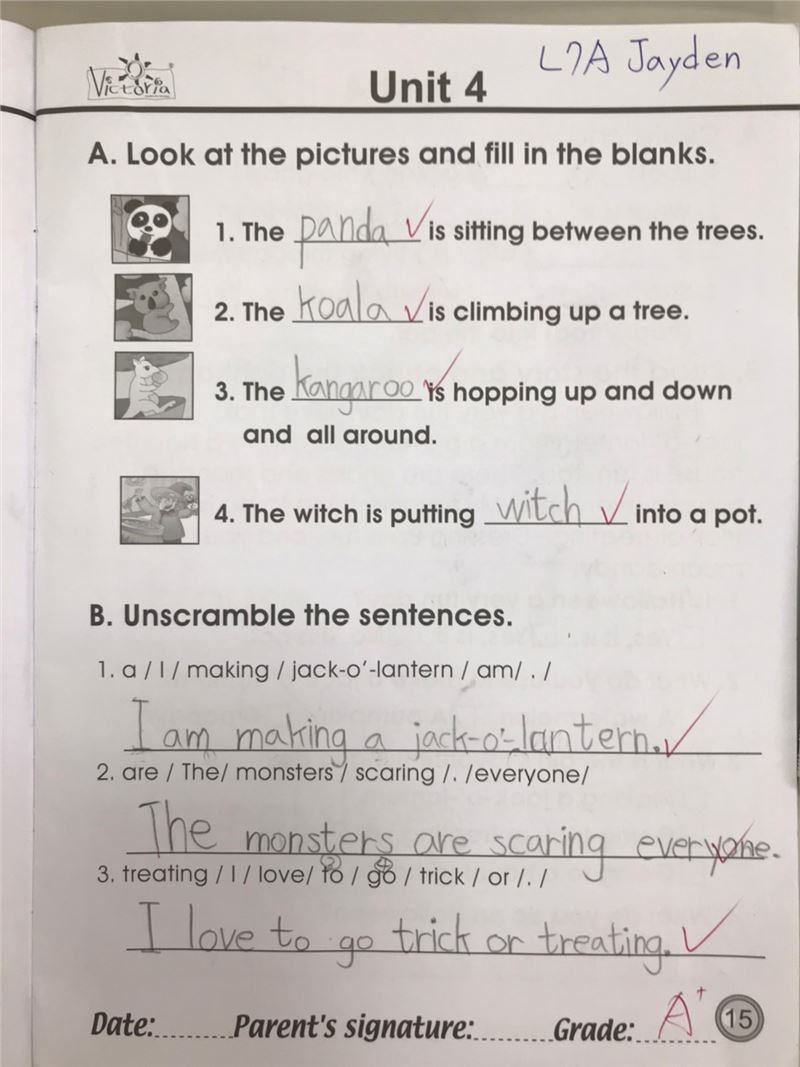 Victoria
Unit 4
L7A Jayden
A. Look at the pictures and fill in the blanks.
1. The panda is sitting between the trees.
2. The koala is climbing up a tree.
3. The kangaroo is hopping up and down
and all around.
4. The witch is putting witch into a pot.
B. Unscramble the sentences.
1. a / I / making / jack-o'-lantern / am/ . /
I am making a jack-o'-lantern.
2. are / The/ monsters / scaring /. /everyone/
The monsters are scaring everyone.
3. treating / I / love/ to / go / trick / or /. /
I love to go trick or treating.
Date:......... Parent's signature:......... Grade: A+ 15